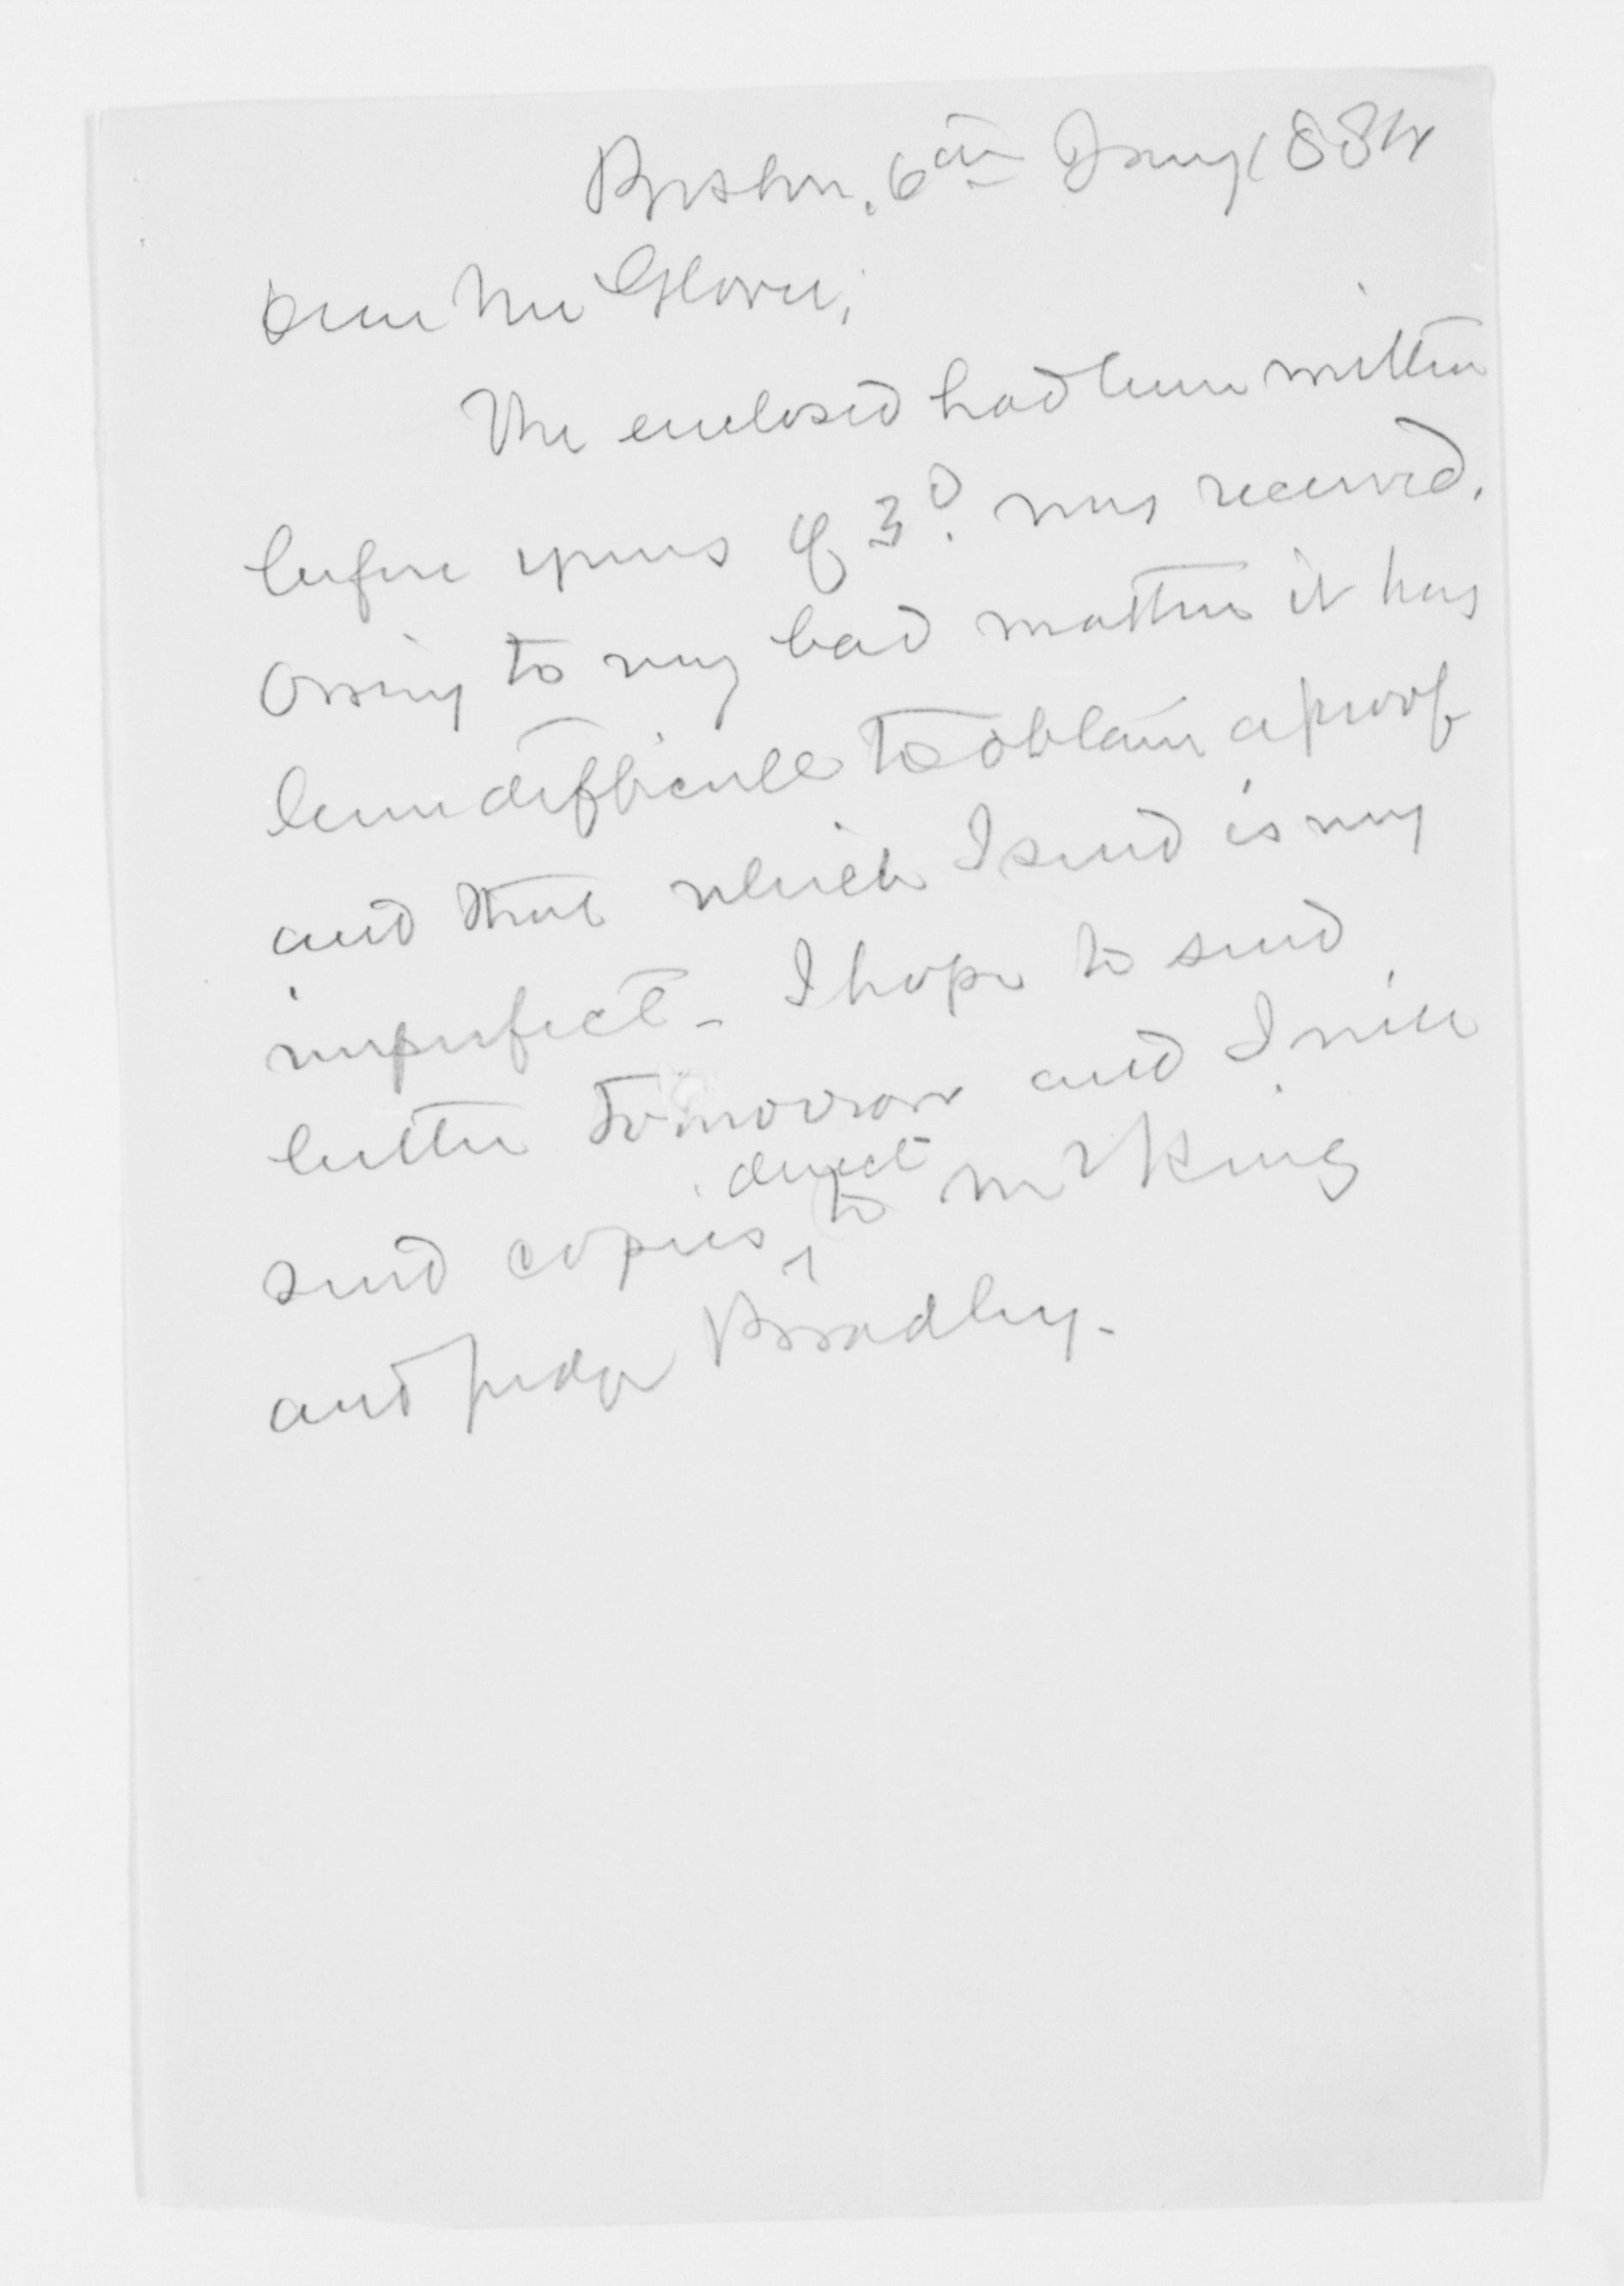 Boston. 6th Jany 1884
Dear Mr Glover,
The enclosed had been written
before yours of 3d. was received.
Owing to my bad matter it has
been difficult to obtain a proof
and that which I send is very
imperfect - I hope to send
better tomorrow and I will
direct
send copies ^ to Mr King
and Judge Bradley -